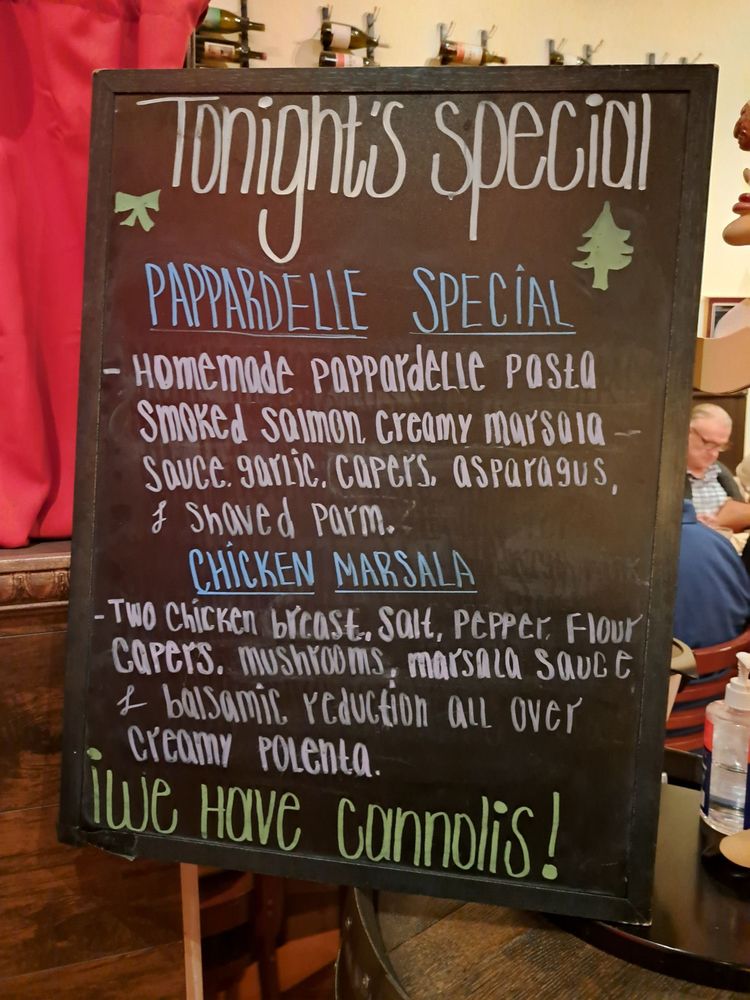 Tonight's Special
PAPPARDELLE SPECIAL
- Homemade pappardelle pasta
smoked salmon, creamy marsala -
sauce, garlic, capers, asparagus,
& shaved parm.
CHICKEN MARSALA
- Two chicken breast, salt, pepper, flour
capers, mushrooms, marsala sauce
& balsamic reduction all over
creamy polenta.
¡We have cannolis!